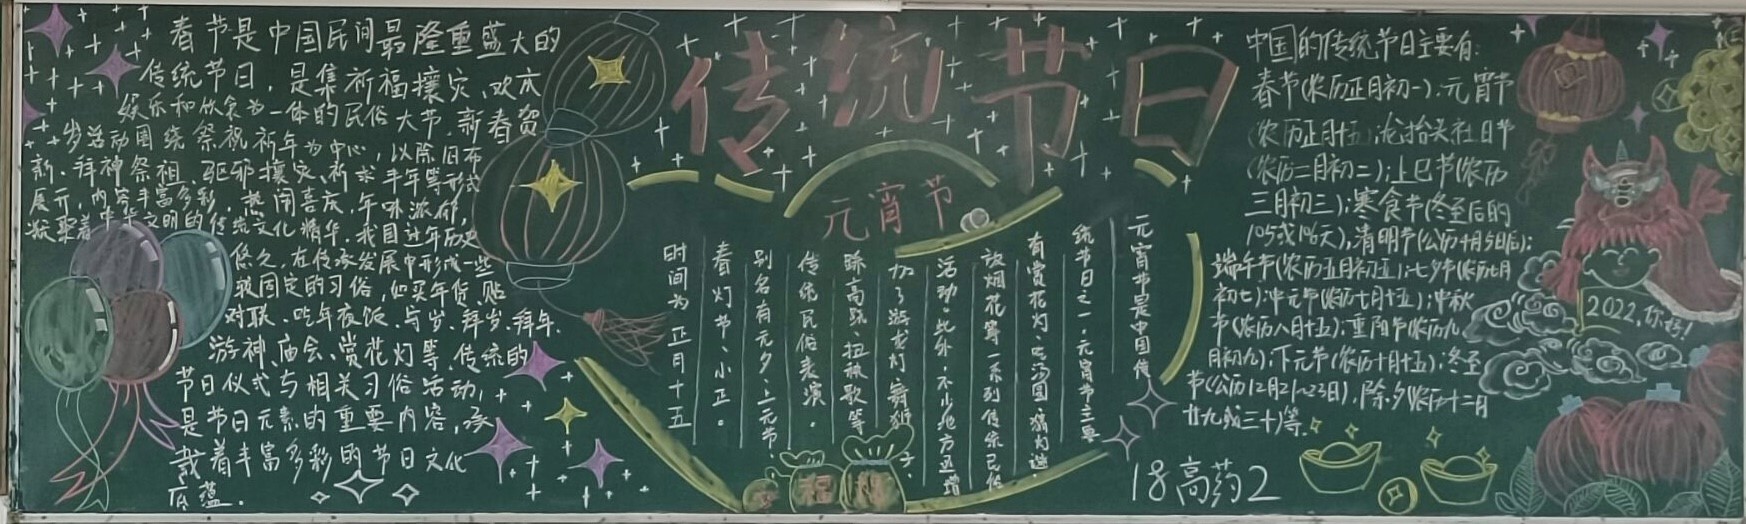 传统节日
春节是中国民间最隆重盛大的
传统节日，是集祈福攘灾、欢庆
娱乐和饮食为一体的民俗大节，新春贺
岁活动围绕祭祝祈年为中心，以除旧布
新、拜神祭祖、驱邪攘灾、祈求丰年等形式
展开，内容丰富多彩，热闹喜庆，年味浓郁，
凝聚着中华文明的传统文化精华。我国过年历史
悠久，在传承发展中形成一些
较固定的习俗，如买年货、贴
对联、吃年夜饭、守岁、拜岁、拜年、
游神、庙会、赏花灯等，传统的
节日仪式与相关习俗活动，
是节日元素的重要内容，承
载着丰富多彩的节日文化
底蕴。
元宵节
元宵节是中国传
统节日之一，元宵节主要
有赏花灯、吃汤圆、猜灯谜、
放烟花等一系列传统民俗
活动。此外，不少地方还增
加了游龙灯、舞狮子、
踩高跷、扭秧歌等
传统民俗表演。
别名有元夕、上元节、
春灯节、小正。
时间为正月十五
中国的传统节日主要有：
春节(农历正月初一)；元宵节
(农历正月十五)；龙抬头社日节
(农历二月初二)；上巳节(农历
三月初三)；寒食节(冬至后的
105或106天)，清明节(公历4月5日后)；
端午节(农历五月初五)；七夕节(农历七月
初七)；中元节(农历七月十五)；中秋
节(农历八月十五)；重阳节(农历九
月初九)；下元节(农历十月十五)；冬至
节(公历12月21~23日)，除夕(农历十二月
廿九或三十)等。
2022，你好！
福
福
18高药2